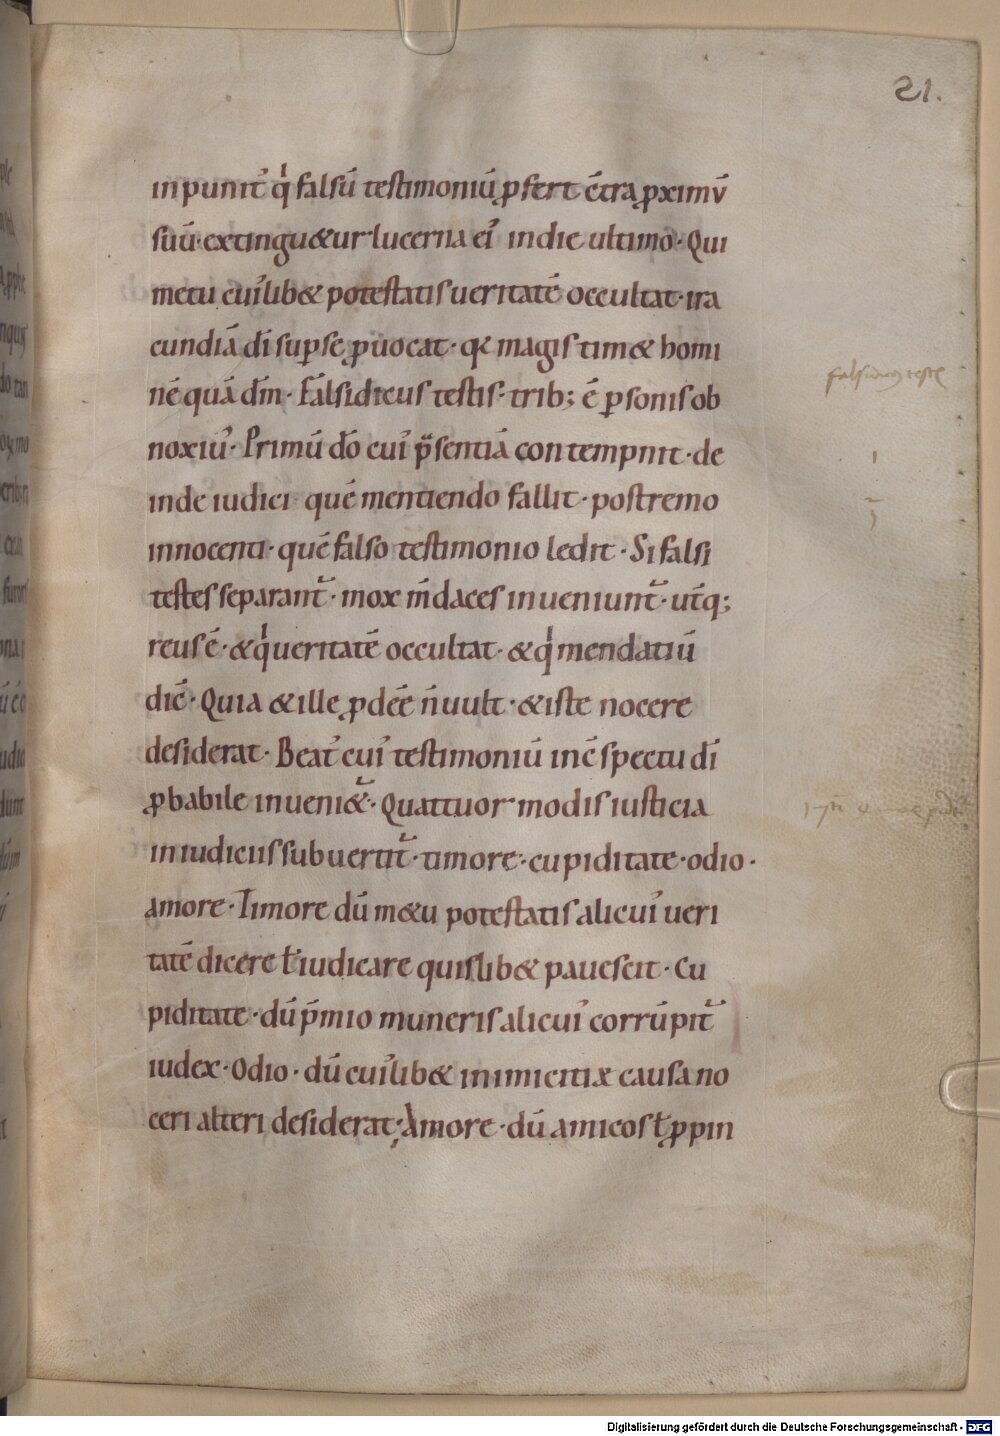 21.
inpunit᾿ qͥ falsū testimoniū ꝓfert c̄tra ꝓximū
suū· extingu&ur lucerna ei᾿ indie ultimo· Qui
metu cui᾿lib& potestatis ueritatē occultat· ira
cundiā dī sup̱ se ꝓuocat· qꝛ magis tim& homi
nē quā dm̄· Falsidicus testis· trib; ē p̱sonis ob
noxiu᾿· Primū do̅ cui᾿ p̄sentiā contempnit· de
inde iudici quē mentiendo fallit· postremo
innocenti· quē falso testimonio ledit· Si falsi
testes separant᷑· mox m̄daces inueniunt᷑· ut̄q;
reus ē· & qͥ ueritatē occultat· & qͥ mendatiū
dic̄· Quia & ille ꝓdēe n̄ uult· & iste nocere
desiderat· Beat᾿ cui᾿ testimoniū inc̄spectu dī
ꝓbabile inueni&᷑· Quattuor modis iusticia
in iudiciis subuertit᷑· timore· cupiditate· odio·
amore· Timore dū m&u potestatis alicui᾿ ueri
tatē dicere ł iudicare quislib& pauescit· Cu
piditate· dū p̄mio muneris alicui᾿ corrūpit᷑
iudex· Odio· dū cui᾿lib& inimicitiæ causa no
ceri alteri desiderat; Amore· dū amicos ł ꝓpin
Digitalisierung gefördert durch die Deutsche Forschungsgemeinschaft - DFG